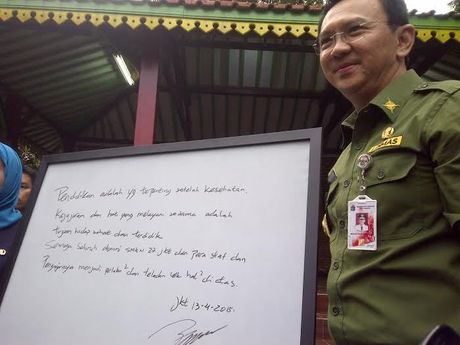 Pendidikan adalah yg terpenting setelah kesehatan.
Kejujuran dan hati yang melayani sesama adalah
tujuan hidup sehat dan terdidik
Semoga seluruh alumni SMKN 27 jkt dan para staf dan
Pengajarnya menjadi pelaku dan teladan utk hal² di atas.
jkt 13-4-2015.